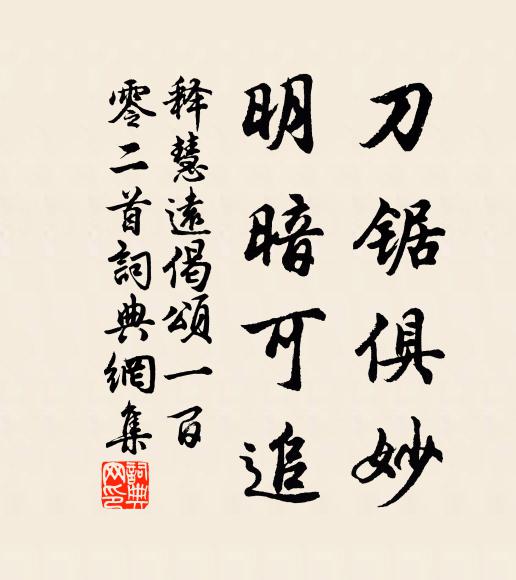 刀锯俱妙
明暗可追
释慧遠偈頌一百
零二首詞典網集
詞典网印